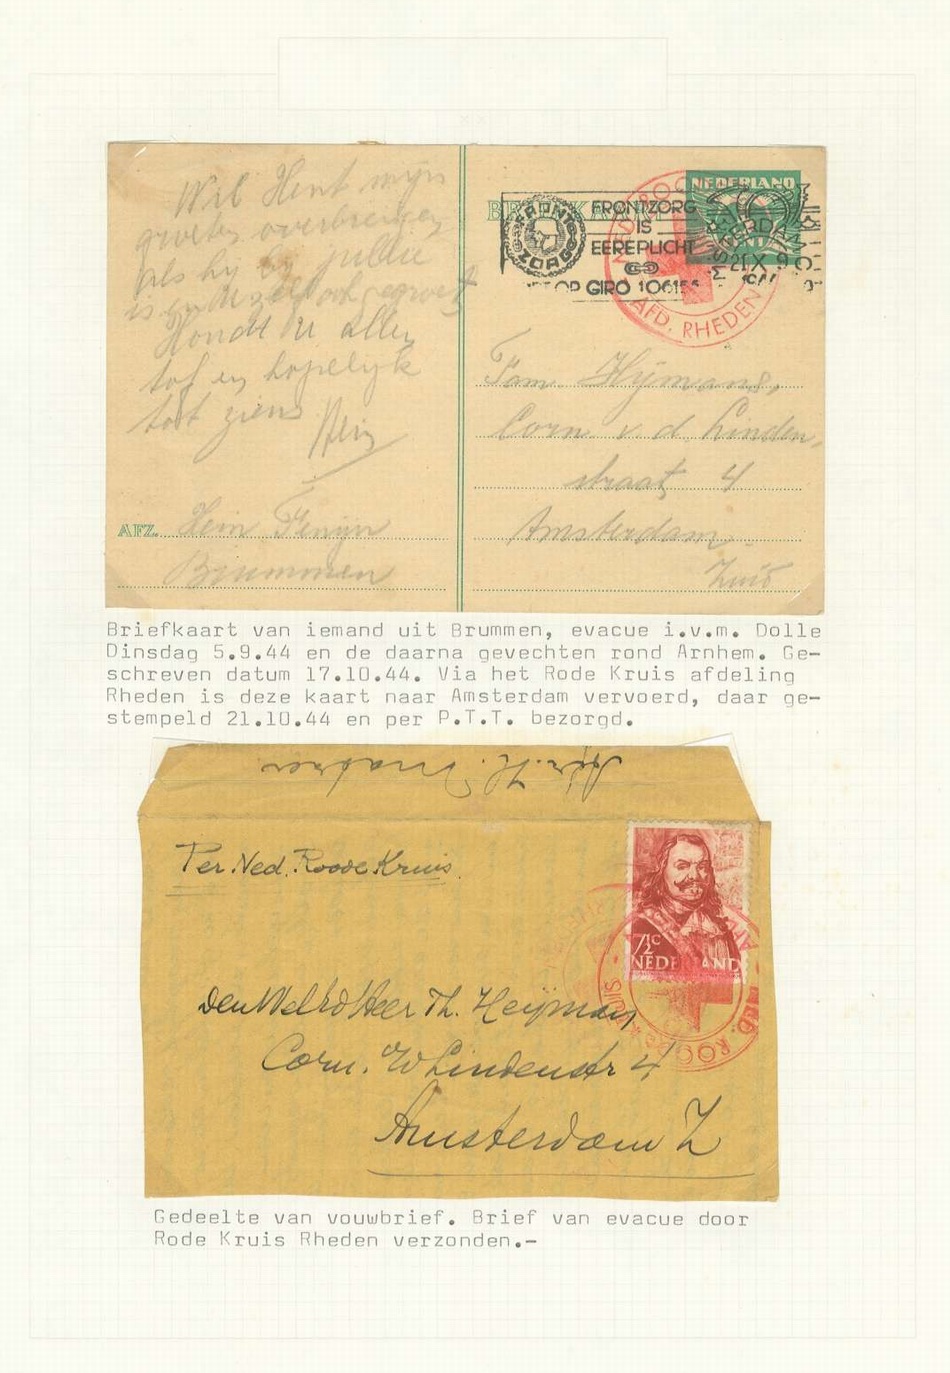 Wil Hent mijn
groeten overbrengen
als hij bij jullie
is
Houdt U allen
taf en hopelijk
tot ziens
AFZ. Hein
Brummen
BRIEFKAART
NEDERLAND
FRONT
ZORG
FRONTZORG
IS
EEREPLICHT
GIRO 106155
AMSTERDAM
21 X
NED. ROO
AFD. RHEDEN
Fam. Hijmans,
Corn. v. d. Linden,
straat 4
Amsterdam
Zuid
Briefkaart van iemand uit Brummen, evacue i.v.m. Dolle
Dinsdag 5.9.44 en de daarna gevechten rond Arnhem. Ge-
schreven datum 17.10.44. Via het Rode Kruis afdeling
Rheden is deze kaart naar Amsterdam vervoerd, daar ge-
stempeld 21.10.44 en per P.T.T. bezorgd.
Per Ned. Roode Kruis.
7½c
NEDERLAND
NED. ROODE KRUIS
Den WelEd Heer Th. Heijmans
Corn. vd Lindenstr 4
Amsterdam Z
Gedeelte van vouwbrief. Brief van evacue door
Rode Kruis Rheden verzonden.-